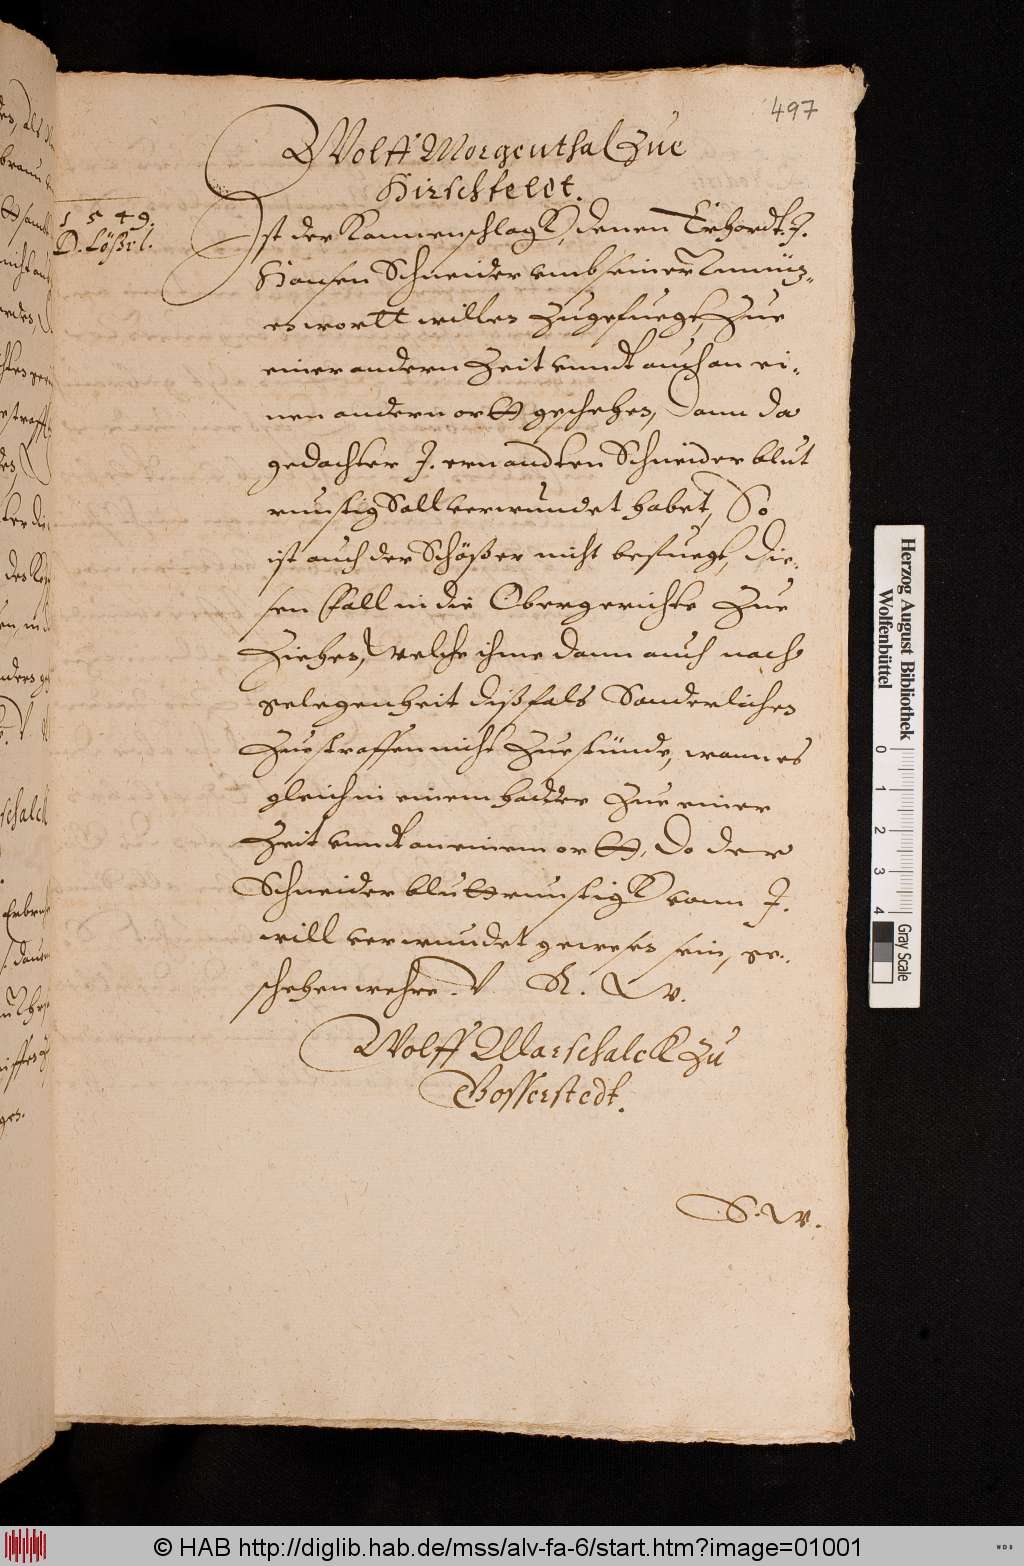 497
Wolff Morgenthal Zue
Hirschfeldt.
1549.
D. Lößel.
Ist der Kannenschlagk, denen Erhardt J.
Hansen Schneider vmb seiner
wortt willen Zugefuegt, Zue
einer andern Zeit vnndt auch an ei-
nen andern ortt geschehen, Dann da
gedachter J. ernandten Schneider blut
runstig Soll verwundet habet, So
ist auch der Schößer nicht befuegt, die-
sen fall in die Obergerichte Zue
Ziehen, welche ihme dann auch nach
gelegenheit dißfals Sonderlichen
Zuestraffen nicht Zuestünde, wann es
gleich in einem hadder Zue einer
Zeit vnndt an einem ortt, Do der
Schneider bluttrunstigk vonn J.
will verwundet gewesen sein, ge-
schehen wehre. V. R. W.
Wolff Marschalck Zu
Gosserstedt.
S. W.
Herzog August Bibliothek
Wolfenbüttel
0 1 2 3 4
Gray Scale
© HAB http://diglib.hab.de/mss/alv-fa-6/start.htm?image=01001